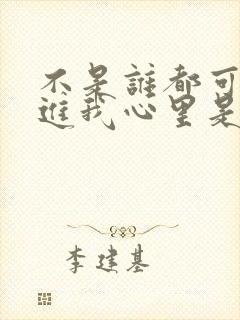 不是誰都可
進我心里是
李建基